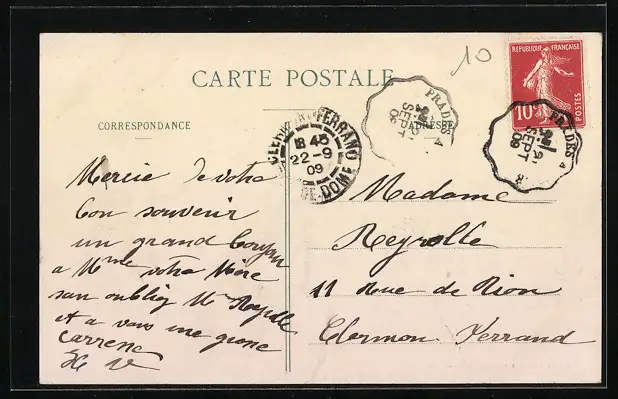 10
CARTE POSTALE
REPUBLIQUE FRANÇAISE
10c
POSTES
CORRESPONDANCE
ADRESSE
CLERMONT-FERRAND
18 45
22-9
09
PUY-DE-DOME
PRADES A
SEPT
09
PRADES A
SEPT
09
Mercie de votre
bon souvenir
un grand
a Mme votre Mère
san oublier Mr Reyrolle
et a vous une grosse
carresse
Madame
Reyrolle
11 Rue de Rion
Clermon. Ferrand